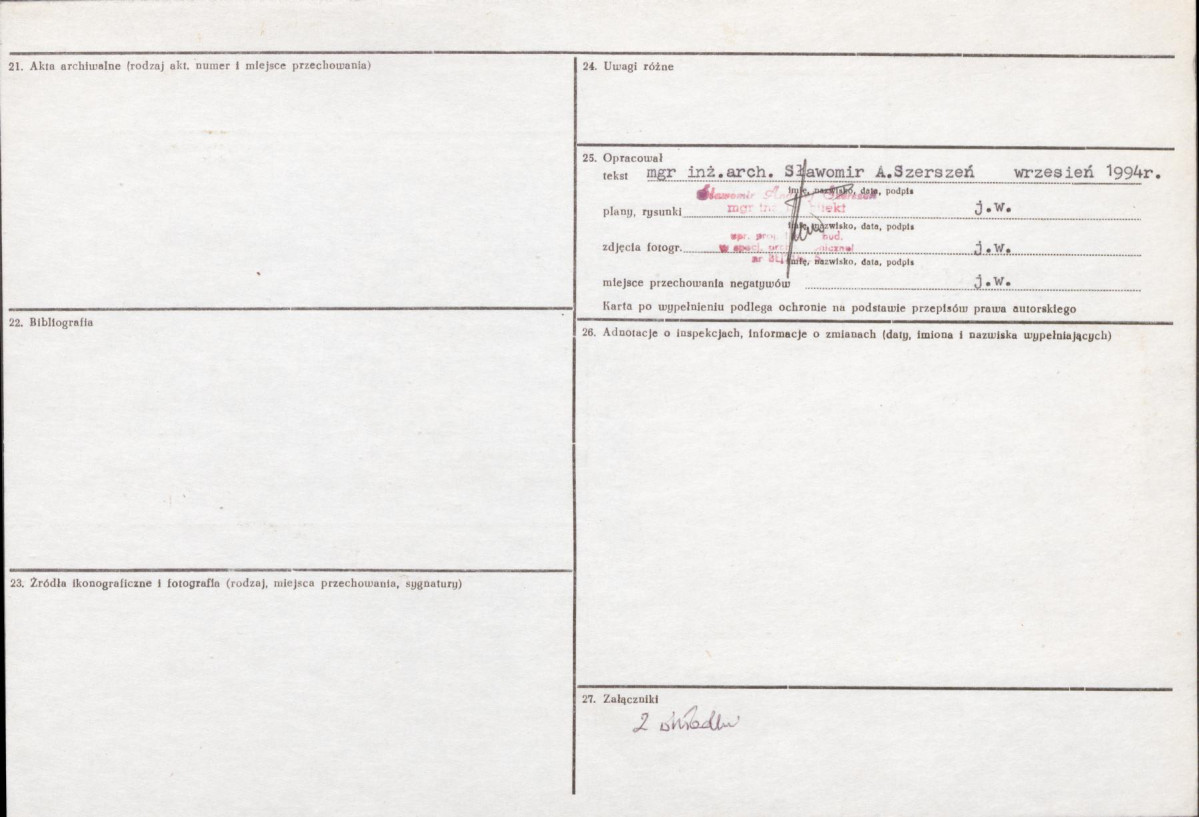 21. Akta archiwalne (rodzaj akt, numer i miejsce przechowania)
22. Bibliografia
23. Źródła ikonograficzne i fotografia (rodzaj, miejsca przechowania, sygnatury)
24. Uwagi różne
25. Opracował
tekst mgr inż.arch. Sławomir A.Szerszeń wrzesień 1994r.
imię, nazwisko, data, podpis
Sławomir Szerszeń
mgr
plany, rysunki j.w.
imię, nazwisko, data, podpis
upr. bud.
zdjęcia fotogr. j.w.
w specj.
nr
imię, nazwisko, data, podpis
miejsce przechowania negatywów j.w.
Karta po wypełnieniu podlega ochronie na podstawie przepisów prawa autorskiego
26. Adnotacje o inspekcjach, informacje o zmianach (daty, imiona i nazwiska wypełniających)
27. Załączniki
2 wkładki